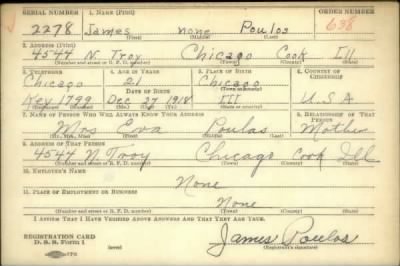 SERIAL NUMBER 1. NAME (Print) ORDER NUMBER
2278 James none Poulos 638
(First) (Middle) (Last)
2. ADDRESS (Print)
4544 N. Troy Chicago Cook Ill
(Number and street or R. F. D. number) (Town) (County) (State)
3. TELEPHONE 4. AGE IN YEARS 5. PLACE OF BIRTH 6. COUNTRY OF CITIZENSHIP
Chicago 21 Chicago
(Town or county)
Key 1799 Dec 27 1918 Ill U.S.A
7. NAME OF PERSON WHO WILL ALWAYS KNOW YOUR ADDRESS 8. RELATIONSHIP OF THAT PERSON
Mrs Eva Poulas Mother
(Mr., Mrs., Miss) (First) (Middle) (Last)
9. ADDRESS OF THAT PERSON
4544 N. Troy Chicago Cook Ill
(Number and street or R. F. D. number) (Town) (County) (State)
10. EMPLOYER'S NAME
None
11. PLACE OF EMPLOYMENT OR BUSINESS
None
(Number and street or R. F. D. number) (Town) (County) (State)
I AFFIRM THAT I HAVE VERIFIED ABOVE ANSWERS AND THAT THEY ARE TRUE.
REGISTRATION CARD
D. S. S. Form 1 (over) James Poulos
(Registrant's signature)